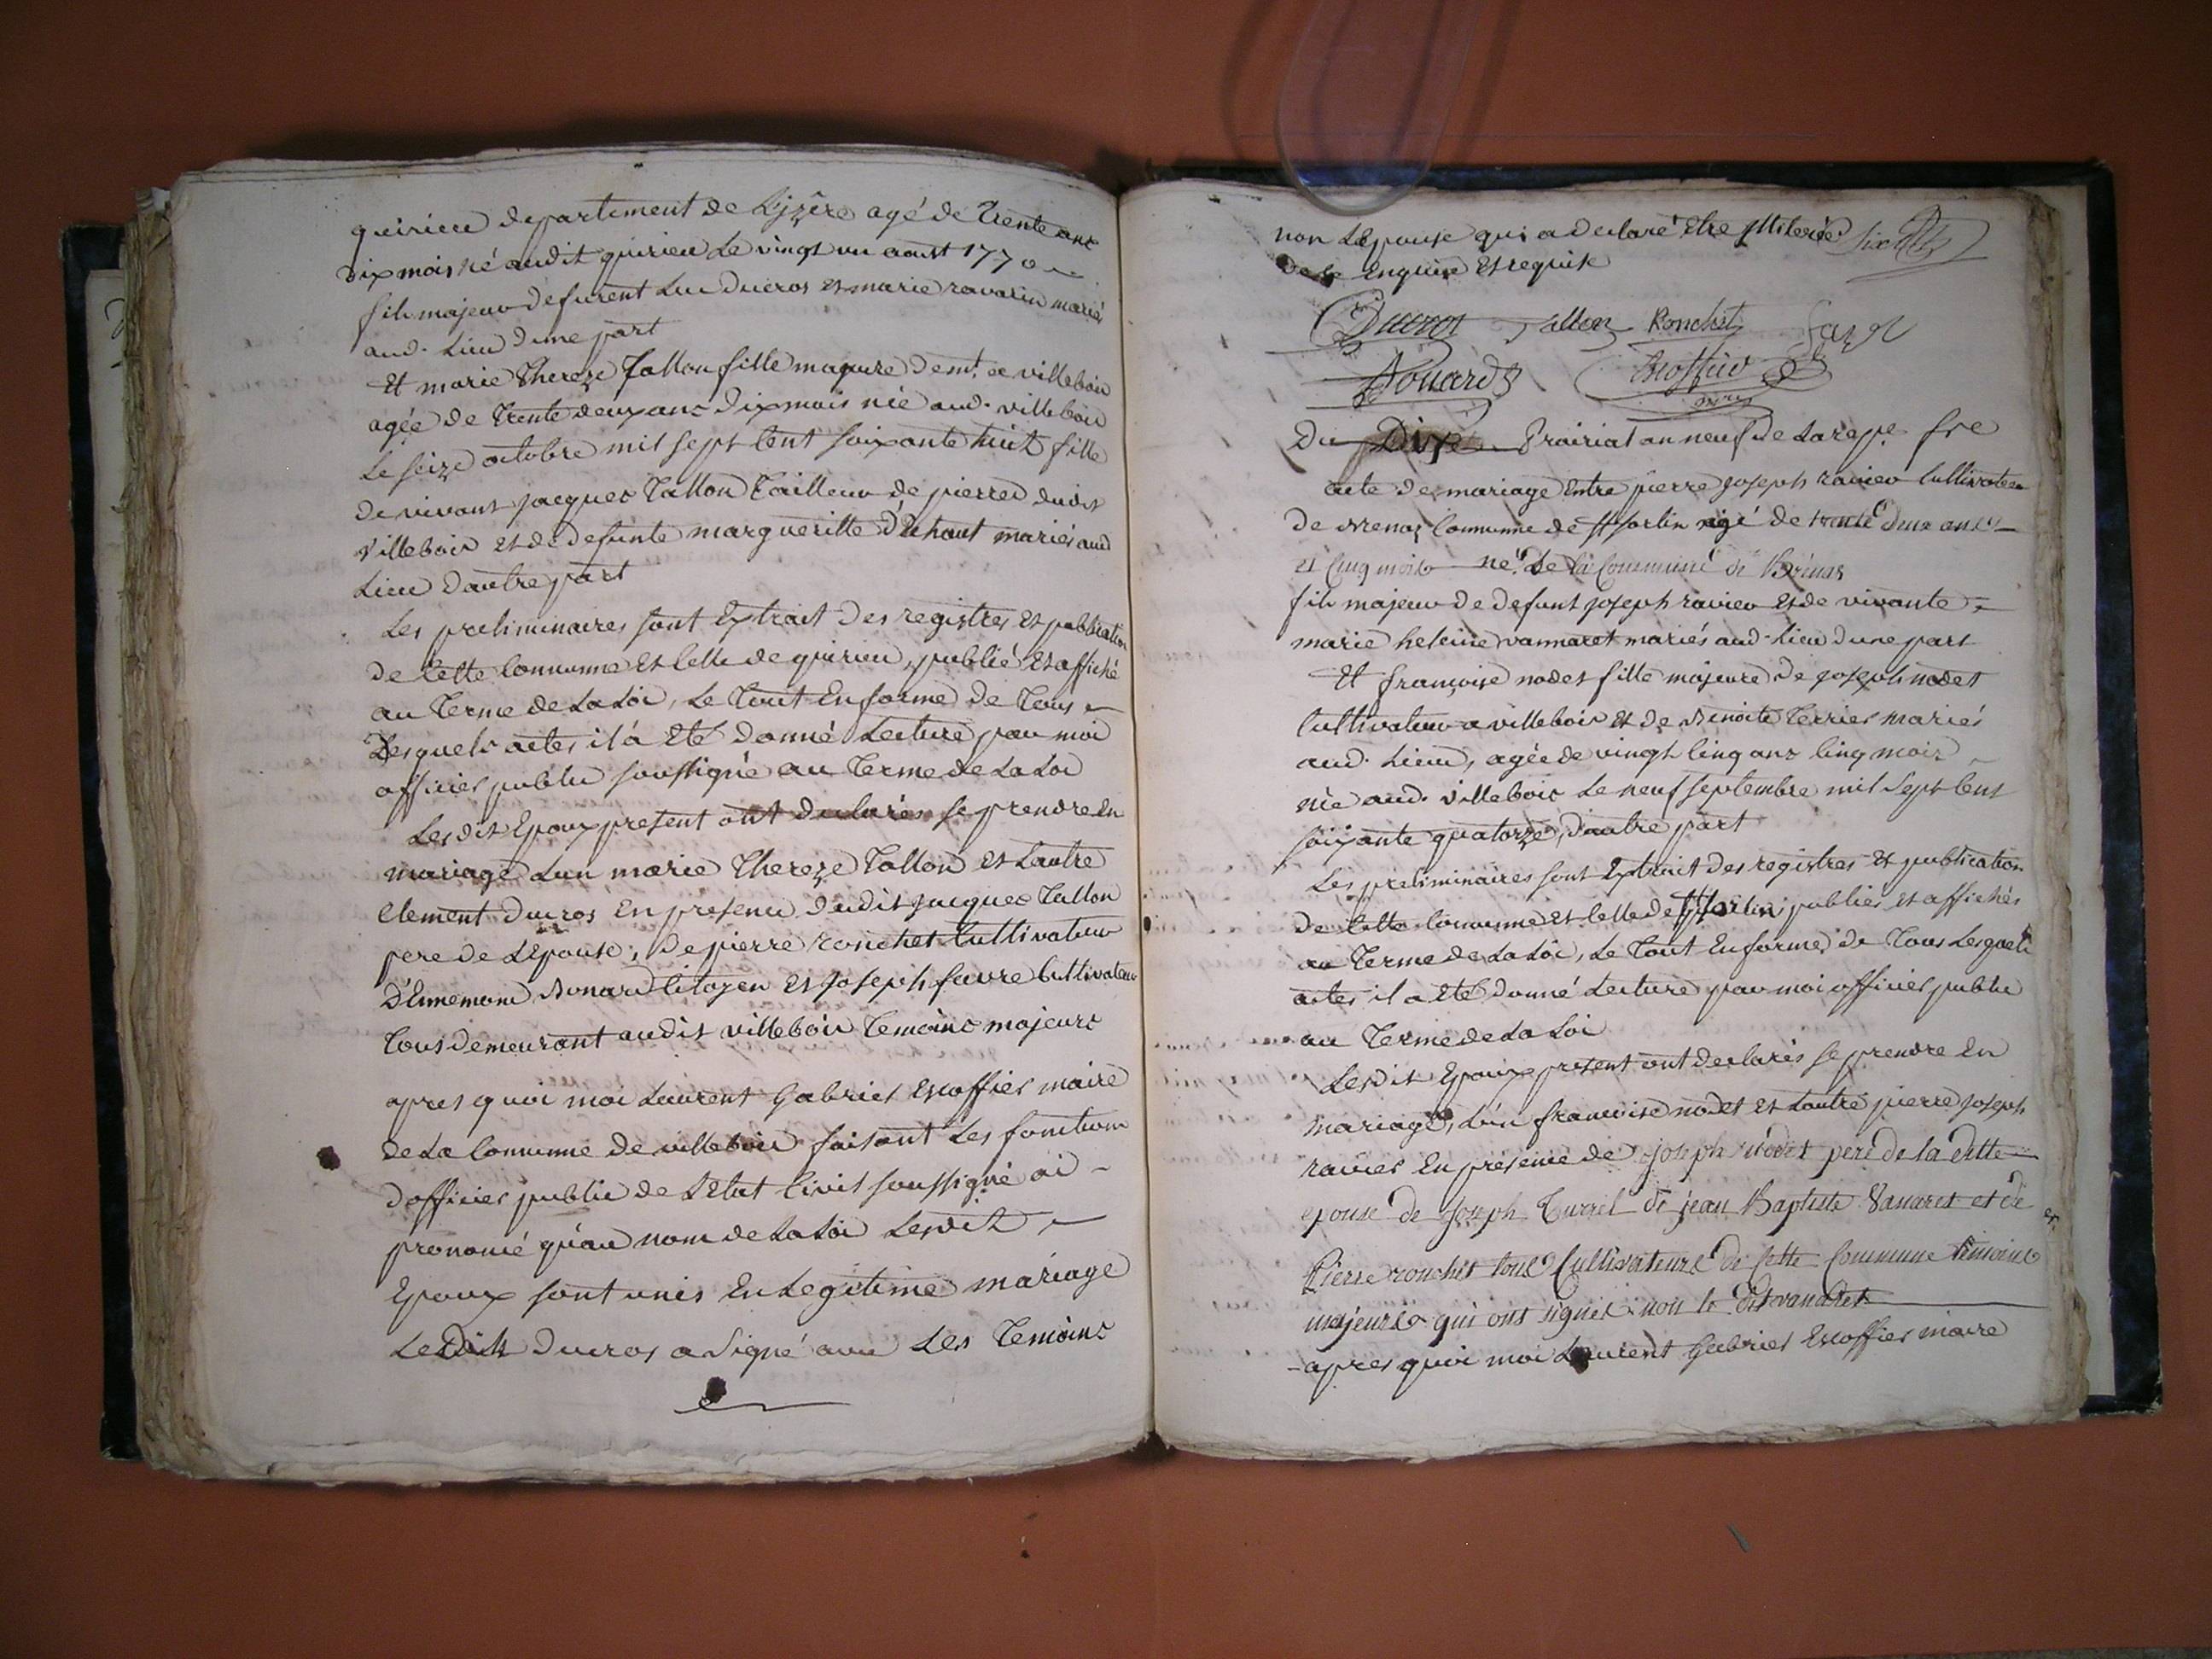 quirieu departement de L'jzère agé de trente ans
dix mois né audit quirieu Le vingt un aoust 1770
fils majeur defurent Luc Ducros et marie ravarin mariés
aud. Lieu dune part
Et marie Thereze Tallon fille majeure demt. a villebois
agée de trente deux ans dix mois née aud. villebois
Le seize octobre mil sept cent soixante huit fille
de vivant jacques Tallon Tailleur de pierres dudit
villebois et de defunte margueritte Duhaut mariés aud
Lieu d'autre part
Les preliminaires sont Extrait des registres et publication
de Cette Commune et Celle de quirieu, publié et affiché
au Terme de La Loi, Le Tout En forme de Tous
Lesquels actes il a Eté donné Lecture par moi
officier public soussigné au Terme de La Loi
Lesdit Epoux present ont declarés se prendre En
mariage Lun marie Thereze Tallon et Lautre
Clement Ducros En presence dudit jacques Tallon
pere de L'Epouse, de pierre ronchet Cultivateur
D'Ennemond Bonard Citoyen et joseph favre Cultivateur
Tous demeurant audit villebois Temoins majeurs
apres quoi moi Laurent Gabriel Escoffier maire
de La Commune de villebois faisant Les fonctions
dofficier public de L'Etat Civil soussigné ai
prononcé qu'au nom de La Loi Lesdit
Epoux sont unis En Legitime mariage
Ledit Ducros a signé avec Les Temoins
non L'Epouse qui a declaré Etre illiterée
de ce Enquise Et requise
Ducros Tallon Ronchet
Bonard Escoffier
Du Dix Prairial an neuf de La repe. fse
acte de mariage Entre pierre joseph ravier Cultivateur
de Brenaz Commune de St sorlin agé de trente deux ans
et Cinq mois né de la Commune de Brenaz
fils majeur de defunt joseph ravier et de vivante
marie heleine vannaret mariés aud. Lieu dune part
Et françoise nodet fille majeure de joseph nodet
Cultivateur a villebois et de Benoite Terrier mariés
aud. Lieu, agée de vingt Cinq ans Cinq mois
née aud. villebois Le neuf septembre mil sept Cent
soixante quatorze, d'autre part
Les preliminaires sont Extrait des registres et publication
de Cette Commune et Celle de St sorlin publiés et affichés
au Terme de La Loi, Le Tout En forme de Tous Lesquels
actes il a Eté donné Lecture par moi officier public
au Terme de La Loi
Lesdit Epoux present ont declarés se prendre En
mariage, L'un francoise nodet et Lautre pierre joseph
ravier En présence de joseph nodet pere de la ditte
epouse de joseph Turrel de jean Baptiste Vanaret et de
Pierre ronchet tous Cultivateurs de Cette Commune temoins
majeurs qui ont signés non le dit vanaret
apres quoi moi Laurent Gabriel Escoffier maire